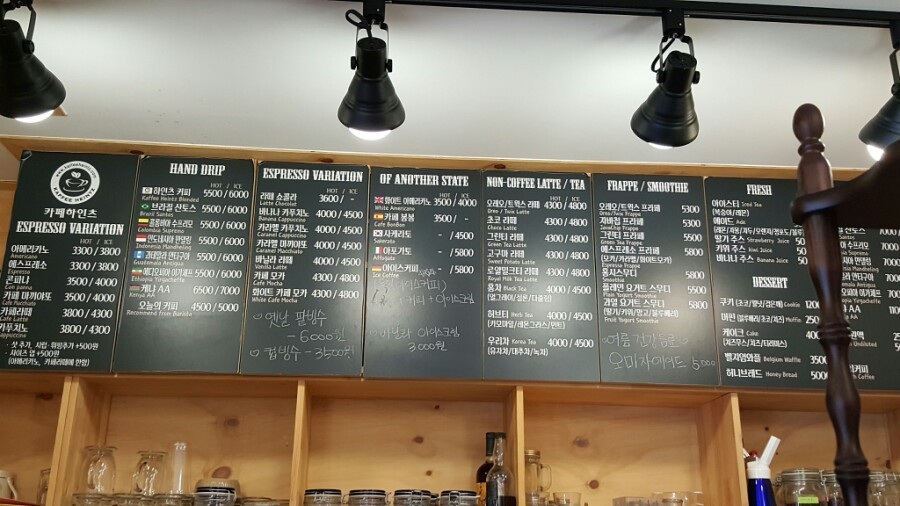 COFFEE HEINTZ
카페하인츠
ESPRESSO VARIATION
HOT / ICE
아메리카노 3300 / 3800
Americano
에스프레소 3300 / 3800
Espresso
콘파나 3500 / 4000
Con panna
카페 마끼아또 3500 / 4000
Cafe Macchiato
카페 라떼 3800 / 4300
Cafe Latte
카푸치노 3800 / 4300
Cappuccino
· 샷 추가, 시럽·휘핑추가 +500원
· 사이즈 업 +500원
(아메리카노, 카페라떼에 한함)
HAND DRIP
HOT / ICE
하인츠 커피 5500 / 6000
Koffee Heintz Blended
브라질 산토스 5500 / 6000
Brazil Santos
콜롬비아 수프리모 5500 / 6000
Colombia Supremo
인도네시아 만델링 5500 / 6000
Indonesia Mandheling
과테말라 안티구아 5500 / 6000
Guatemala Antigua
에디오피아 이가체프 5500 / 6000
Ethiopia Yirgacheffe
케냐 AA 6500 / 7000
Kenya AA
오늘의 커피 4500 / 5000
Recommend from Barista
ESPRESSO VARIATION
HOT / ICE
라떼 쇼콜라 3600 / -
Latte Chocolat
바나나 카푸치노 4000 / 4500
Banana Cappuccino
카라멜 카푸치노 4000 / 4500
Caramel Cappuccino
카라멜 마끼아또 4000 / 4500
Caramel Macchiato
바닐라 라떼 4000 / 4500
Vanilla Latte
카페 모카 4300 / 4800
Cafe Mocha
화이트 카페 모카 4300 / 4800
White Cafe Mocha
♡ 옛날 팥빙수
- 6000원
♡ 컵빙수 - 3500원
OF ANOTHER STATE
HOT / ICE
화이트 아메리카노 3500 / 4000
White Americano
카페 봉봉 3500 / -
Cafe BonBon
샤카라또 - / 4500
Sakerato
아포가토 - / 5800
Affogato
아이스커피 - / 5800
Ice Coffee
아이스크림
바닐라 아이스크림
3,000원
NON-COFFEE LATTE / TEA
HOT / ICE
오레오/트윅스 라떼 4300 / 4800
Oreo / Twix Latte
초코 라떼 4300 / 4800
Choco Latte
그린티 라떼 4300 / 4800
Green Tea Latte
고구마 라떼 4300 / 4800
Sweet Potato Latte
로열밀크티 라떼 4300 / 4800
Royal Milk Tea Latte
홍차 Black Tea 4000 / 4500
허브티 Herb Tea 4000 / 4500
(카모마일/레몬그라스/민트)
우리차 Korea Tea 4000 / 4500
(유자차/대추차/녹차)
FRAPPE / SMOOTHIE
오레오/트윅스 프라페 5300
Oreo/Twix Frappe
자바칩 프라페 5300
JavaChip Frappe
그린티 프라페 5500
Green Tea Frappe
에스프레소 프라페 5800
Espresso Frappe
홍시스무디 5800
Smoothie
플레인 요거트 스무디 5500
Plain Yogurt Smoothie
과일 요거트 스무디 5800
(딸기/키위/망고/블루베리)
Fruit Yogurt Smoothie
여름 건강음료
오미자에이드 5,000
FRESH
아이스티 Iced Tea
(복숭아/레몬)
에이드 Ade
딸기 주스 Strawberry Juice
키위 주스 Kiwi Juice
바나나 주스 Banana Juice
DESSERT
쿠키 Cookie
머핀 Muffin
케이크 Cake
벨지움와플 Belgium Waffle
허니브레드 Honey Bread